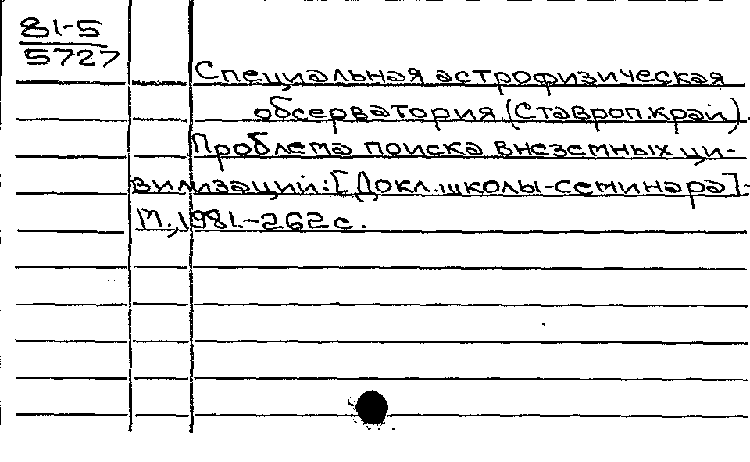 81-5
5727
Специальная астрофизическая
обсерватория (Ставроп.край).
Проблема поиска внеземных ци-
вилизаций: [Докл. школы-семинара].-
М., 1981.-262 с.